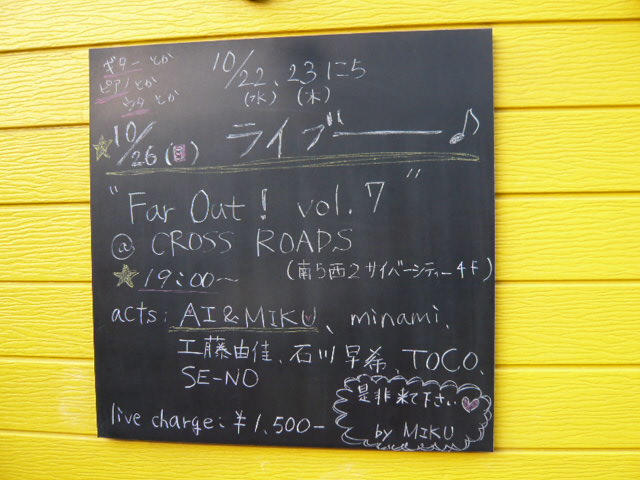 ギターとか
ピアノとか
ウタとか
10/22、23に5
(水) (木)
10/26(日) ライブ――♪
"Far Out! vol.7"
@ CROSS ROADS
(南5西2サイバーシティー4F)
19:00~
acts: AI&MIKU、minami、
工藤由佳、石川早希、TOCO、
SE-NO
live charge:¥1,500-
是非来て下さい♡
by MIKU